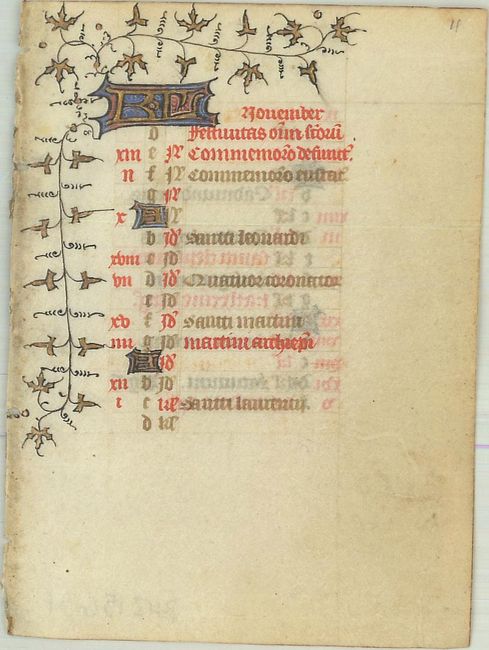 KL November
d Festivitas om̄ sctorū
xiii e N Commemoro defunct.
ii f N Commemoro eustac.
g N
x A N
b Id Sancti leonardi
xviii c Id
vii d Id Quatuor coronator
e Id
xv f Id Sancti martini
iiii g Id martini archiepi
A Id
xii b Id
i c kl Sancti laurentii
d kl